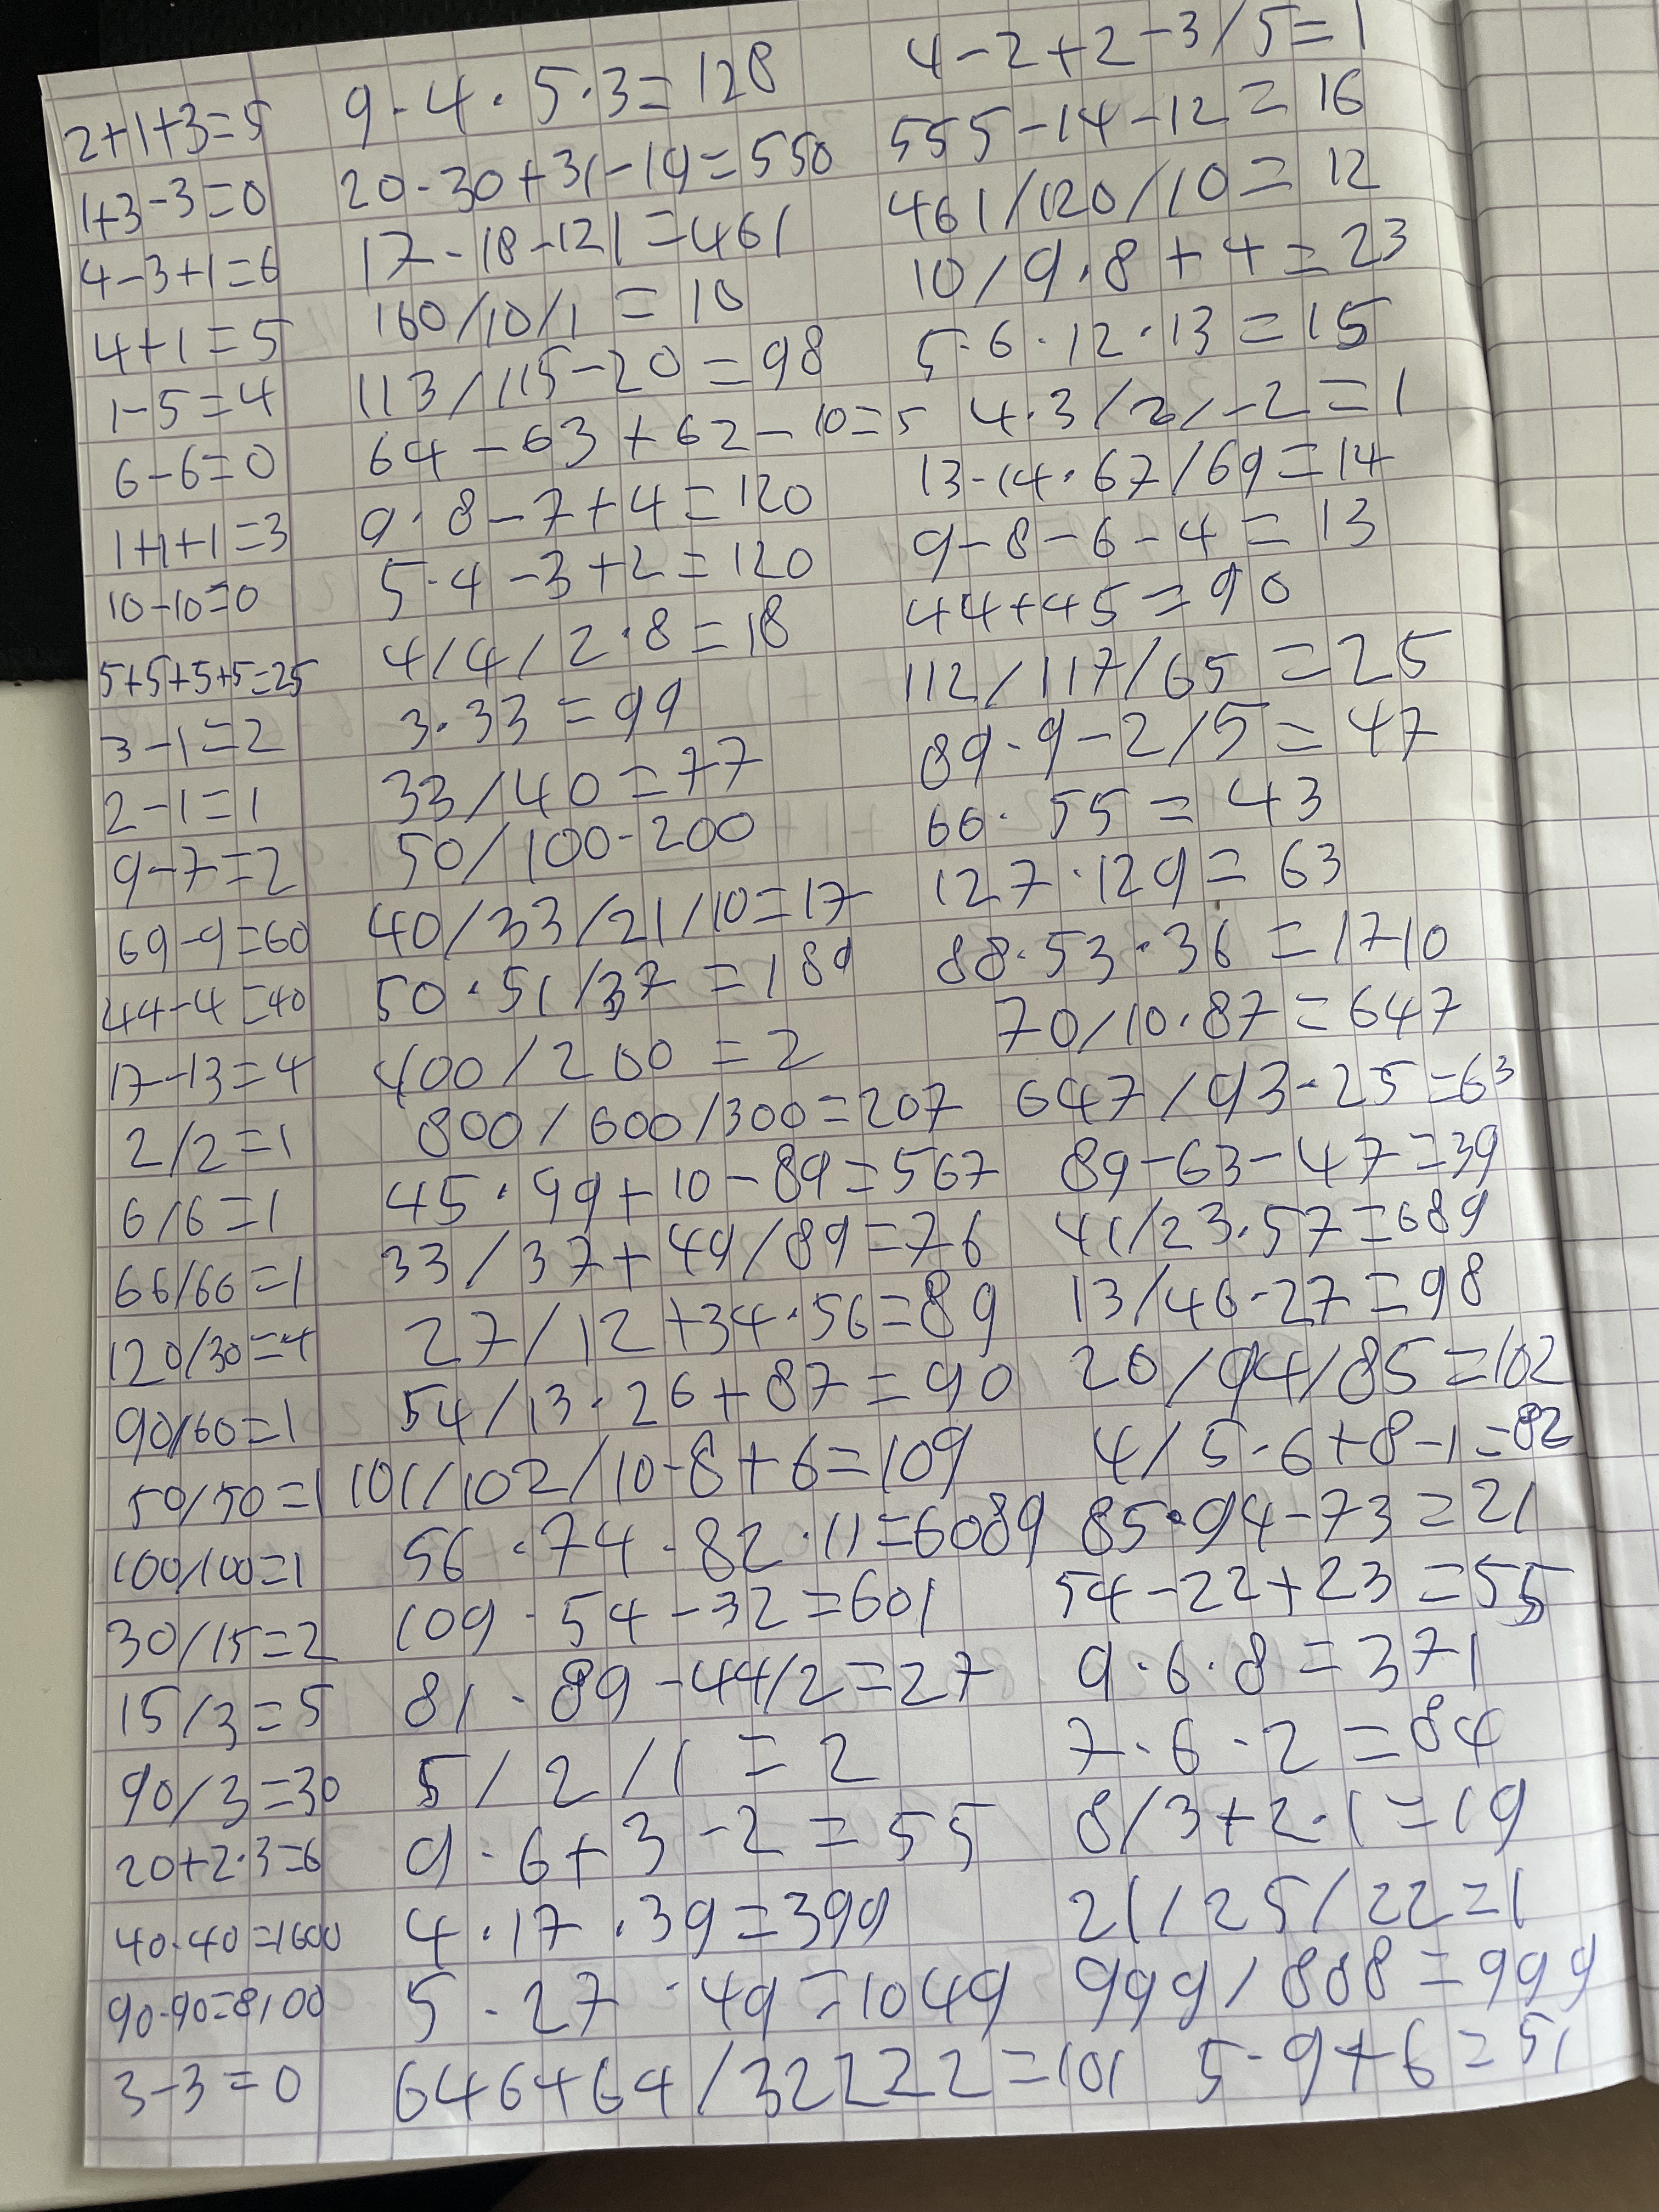 2+1+3=5
1+3-3=0
4-3+1=6
4+1=5
1-5=4
6-6=0
1+1+1=3
10-10=0
5+5+5+5=25
3-1=2
2-1=1
9-7=2
69-9=60
44-4=40
17-13=4
2/2=1
6/6=1
66/66=1
120/30=4
90/60=1
50/50=1
100/100=1
30/15=2
15/3=5
90/3=30
20+2·3=6
40·40=1600
90·90=8100
3-3=0
9·4·5·3=128
20·30+31-19=550
17·18-121=461
160/10/1=10
113/115-20=98
64-63+62-10=5
9·8-7+4=120
5·4-3+2=120
4/4/2·8=18
3·33=99
33/40=77
50/100-200
40/33/21/10=17
50·51/37=189
400/200=2
800/600/300=207
45·99+10-89=567
33/37+49/89=76
27/12+34·56=89
54/13·26+87=90
101/102/10·8+6=109
56·74·82·11=6089
109·54-32=601
81·89-44/2=27
5/2/1=2
9·6+3-2=55
4·17·39=399
5·27·49=1049
646464/32222=101
4-2+2-3/5=1
555-14-12=16
461/120/10=12
10/9·8+4=23
5·6·12·13=15
4·3/2/-2=1
13-14·67/69=14
9-8-6-4=13
44+45=90
112/117/65=25
89·9-2/5=47
66·55=43
127·129=63
88·53·36=1710
70/10·87=647
647/93·25=63
89-63-47=39
41/23·57=689
13/46·27=98
20/94/85=102
4/5·6+8-1=82
85·94-73=21
54-22+23=55
9·6·8=371
7·6·2=84
8/3+2·1=19
21/25/22=1
999/808=999
5·9+6=51